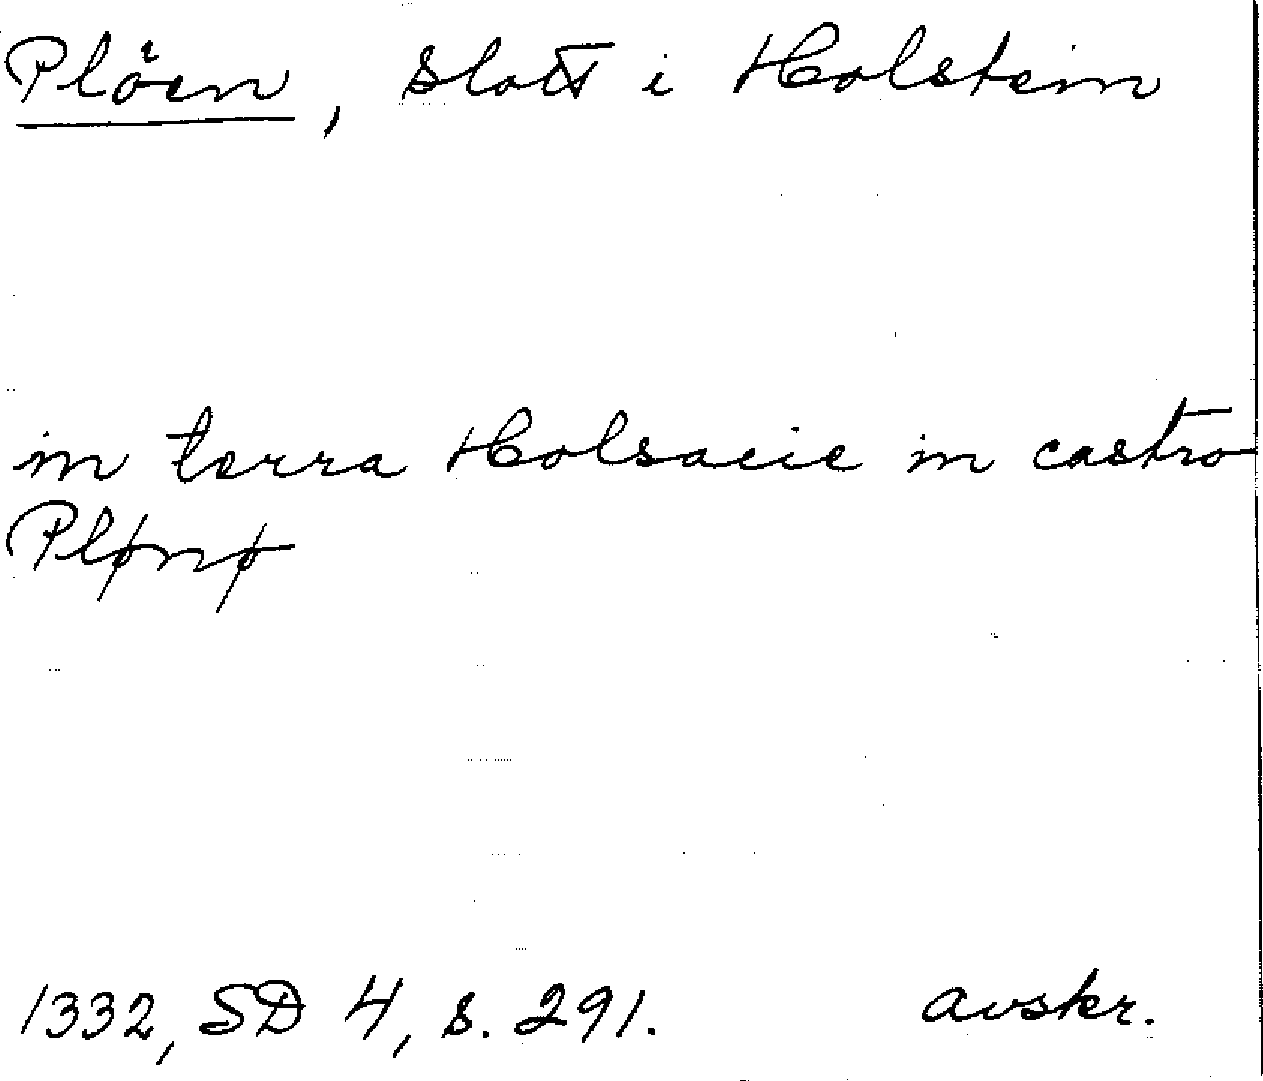 Plöen, slott i Holstein
in terra Holsacie in castro
Plønø
1332, SD 4, s. 291. avskr.